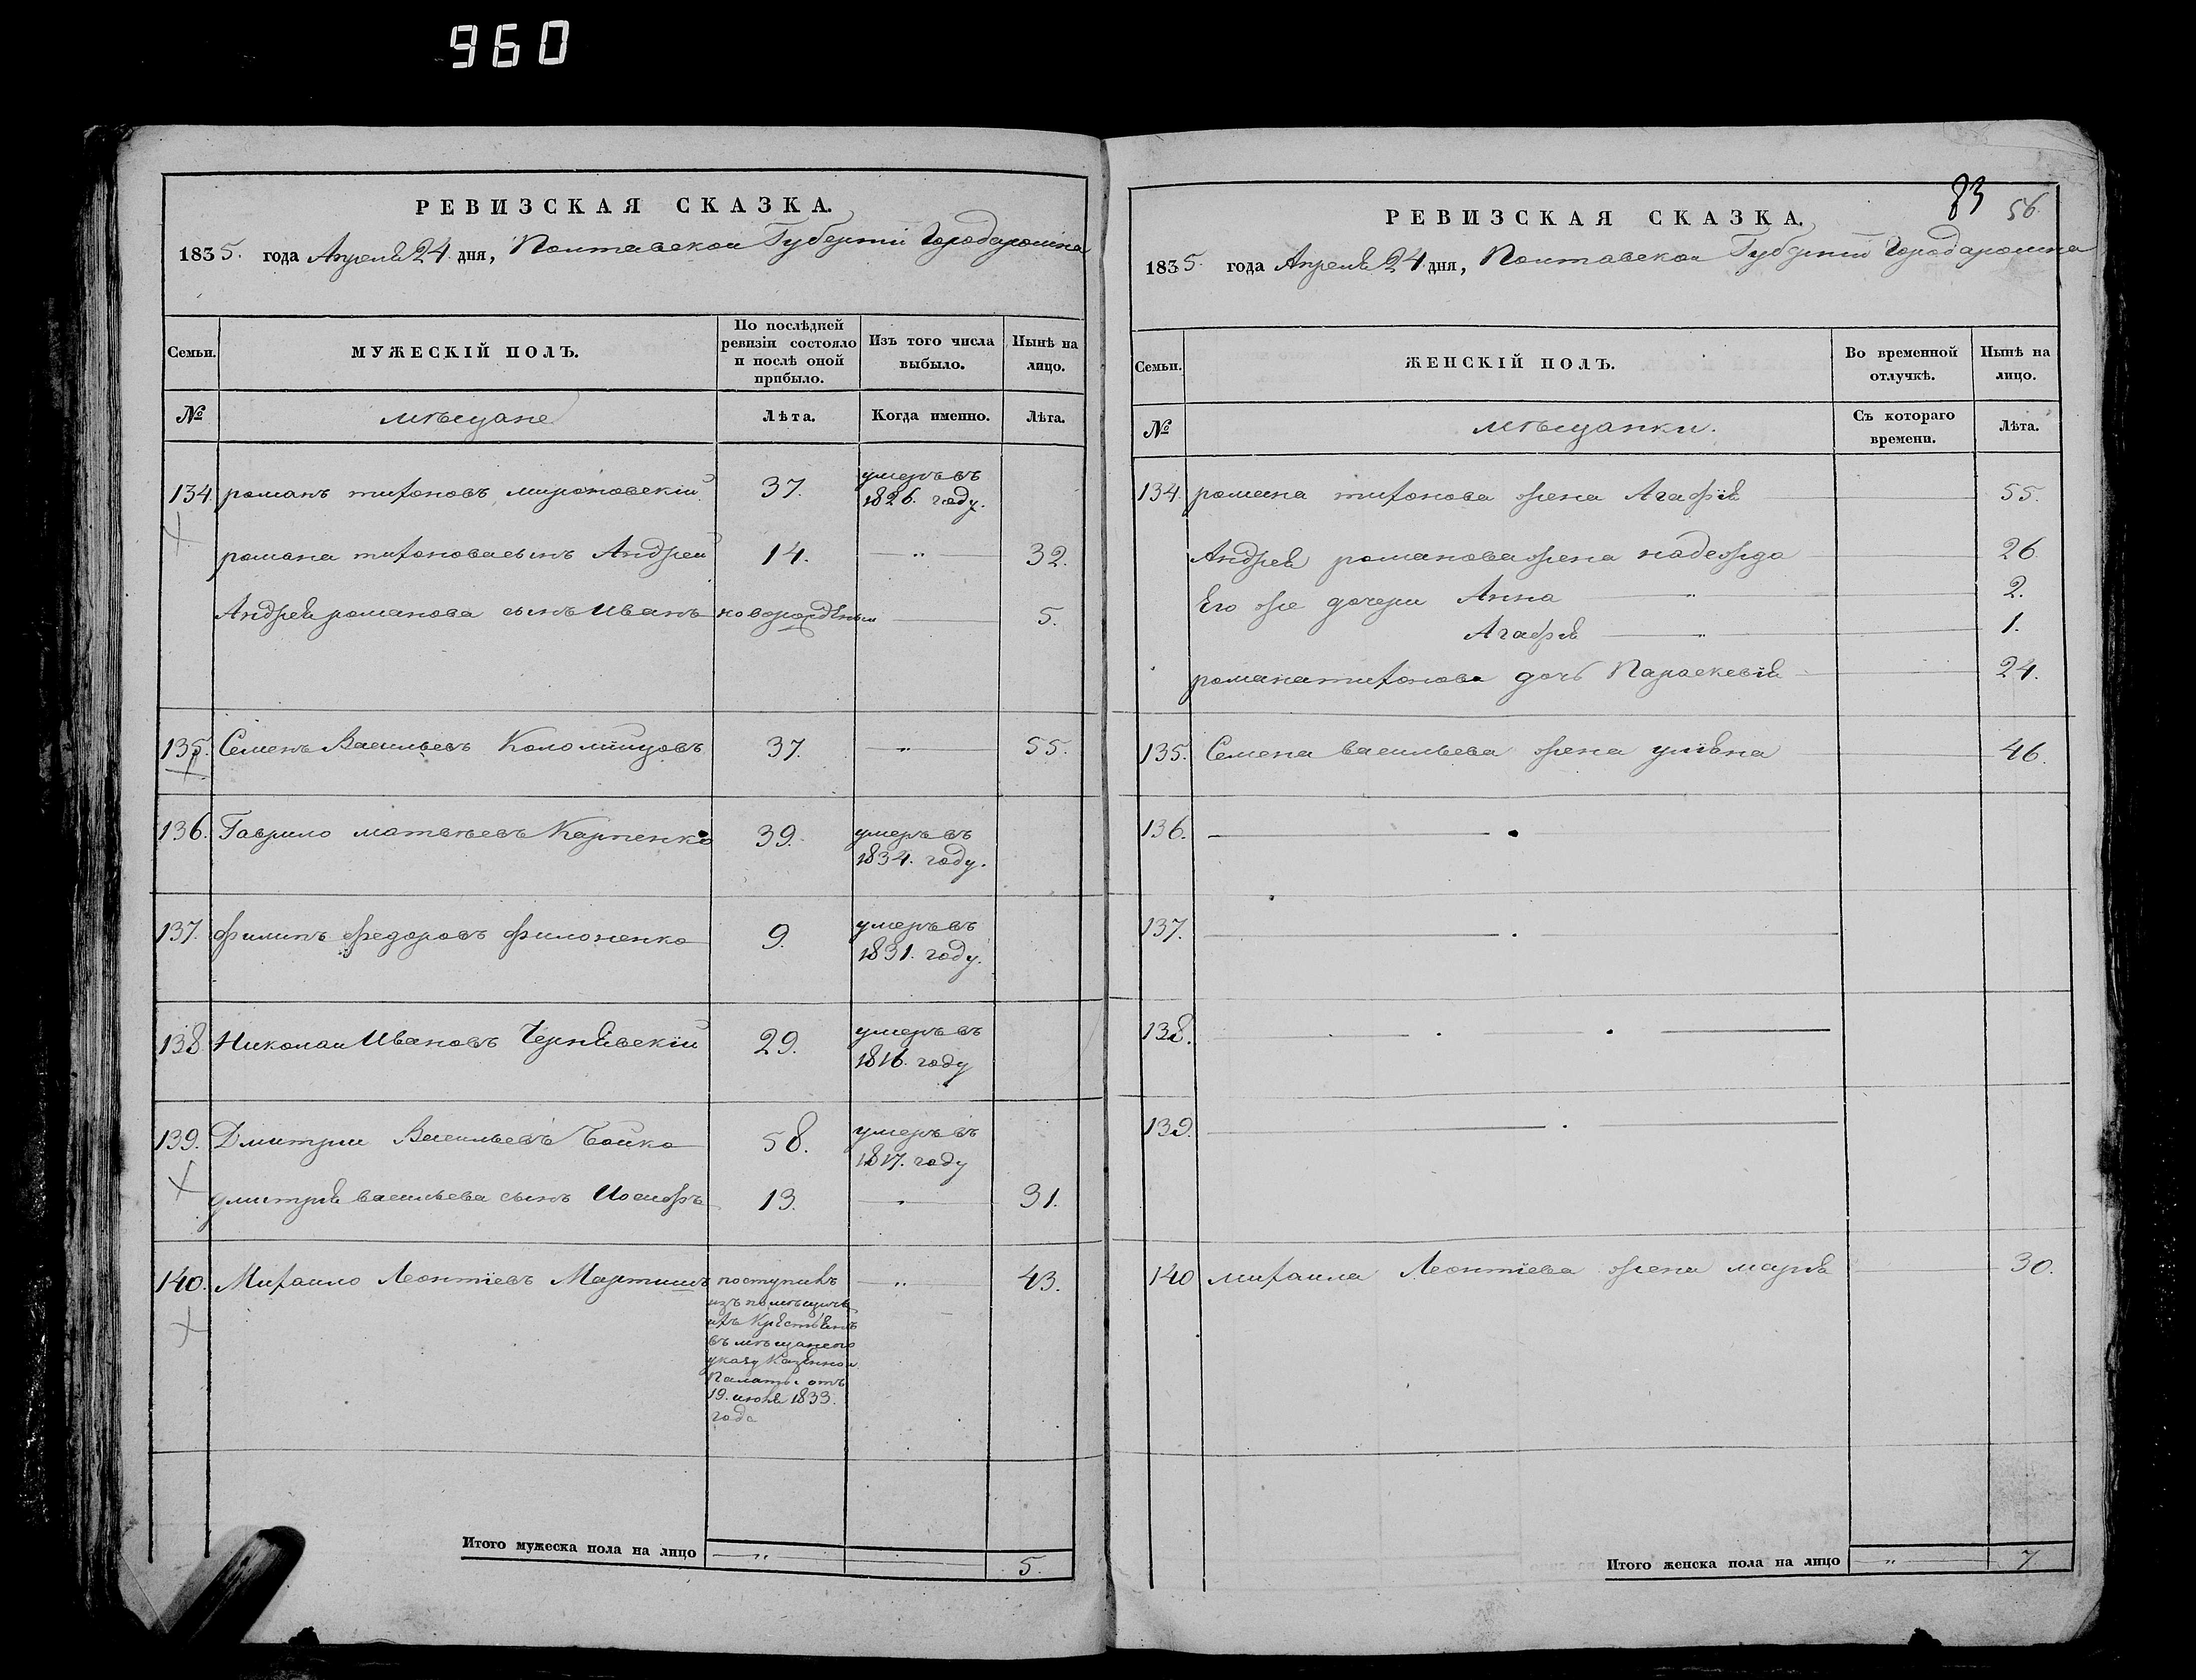 960
РЕВИЗСКАЯ СКАЗКА.
1835. года Апреля 24. дня, Полтавской Губерніи Города ромна
Семьи.
МУЖЕСКІЙ ПОЛЪ.
По послѣдней ревизіи состояло и послѣ оной прибыло.
Изъ того числа выбыло.
Нынѣ на лицо.
№
мѣщане
Лѣта.
Когда именно.
Лѣта.
134. романъ тихоновъ мироновскій 37. умеръ въ 1826. году.
романа тихонова сынъ Андрей 14. 32.
Андрея романова сынъ Иванъ новорожденый 5.
135. Семенъ Васильевъ Коломійцовъ 37. 55.
136. Гаврило матвѣевъ Карпенко 39. умеръ въ 1834. году.
137. филипъ федоровъ филоненко 9. умеръ въ 1831. году.
138. Николай Ивановъ Чернявскій 29. умеръ въ 1816. году
139. Дмитрий Васильевъ Бойко 58. умеръ въ 1817. году
дмитрия васильева сынъ Иосифъ 13. 31.
140. Михаило Леонтіевъ Мартишъ поступилъ 43.
изъ помѣщичь
ихъ Крестьянъ
въ мѣщане по
указу Казенной
Палаты отъ
19. июня 1833.
года
Итого мужеска пола на лицо 5.
83 56.
РЕВИЗСКАЯ СКАЗКА.
1835. года Апреля 24. дня, Полтавской Губерніи Города ромна
Семьи.
ЖЕНСКІЙ ПОЛЪ.
Во временной отлучкѣ.
Нынѣ на лицо.
№
мѣщанки.
Съ котораго времени.
Лѣта.
134. романа тихонова жена Агафія 55.
Андрея романова жена надежда 26.
Его же дочери Анна 2.
Агафія 1.
романа тихонова дочь Параскевія 24.
135. Семена васильева жена уліяна 46.
136.
137.
138.
139.
140 михаила Леонтіева жена марія 30.
Итого женска пола на лицо 7